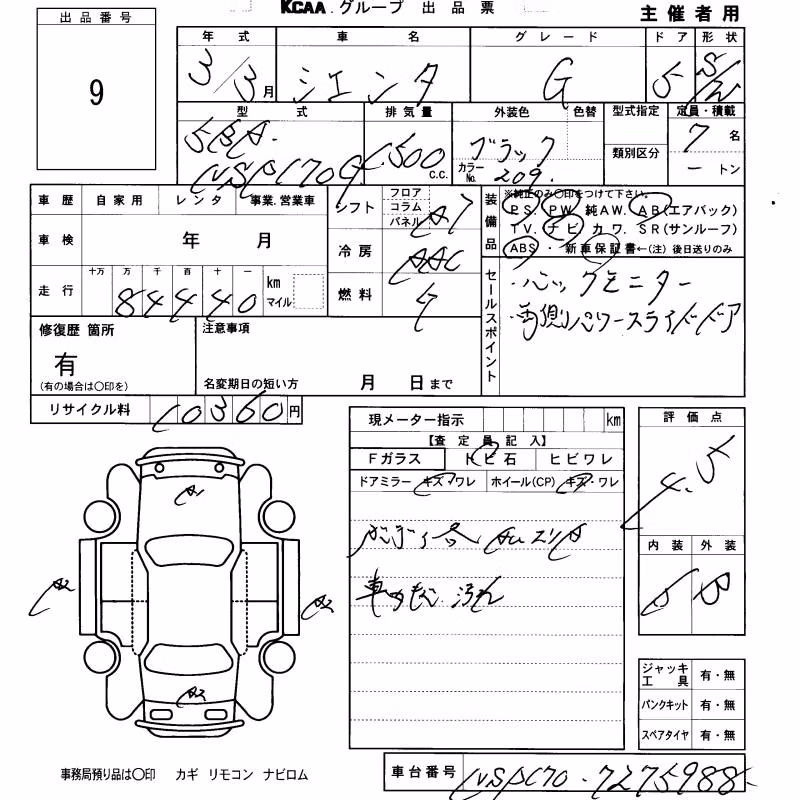 KCAA グループ 出品票
主催者用
出品番号
9
年式 車名 グレード ドア 形状
3/3月 シエンタ G 5 S/W
型式 排気量 外装色 色替 型式指定 定員・積載
5BA. 1,500 c.c. ブラック 7名
NSP170G カラーNo. 209. 類別区分 ートン
車歴 自家用 レンタ 事業.営業車
シフト フロア コラム パネル AT
装備品 ※純正のみ○印をつけて下さい。
PS. PW. 純AW. AB(エアバック)
TV. ナビ カワ. SR(サンルーフ)
ABS ・ 新車保証書←(注)後日送りのみ
車検 年 月
冷房 AAC
走行 十万 万 千 百 十 一
84440 km マイル
燃料
セールスポイント
・バックモニター
・両側パワースライドドア
修復歴 箇所
有
(有の場合は○印を)
注意事項
名変期日の短い方 月 日まで
リサイクル料 10360円
現メーター指示 km
【査定員記入】
Fガラス トビ石 ヒビワレ
ドアミラー キズ・ワレ ホイール(CP) キズ・ワレ
車内 汚れ
評価点
4.5
内装 外装
B B
A1
A2
A2
A2
ジャッキ工具 有・無
パンクキット 有・無
スペアタイヤ 有・無
事務局預り品は○印 カギ リモコン ナビロム
車台番号 NSP170-7275988